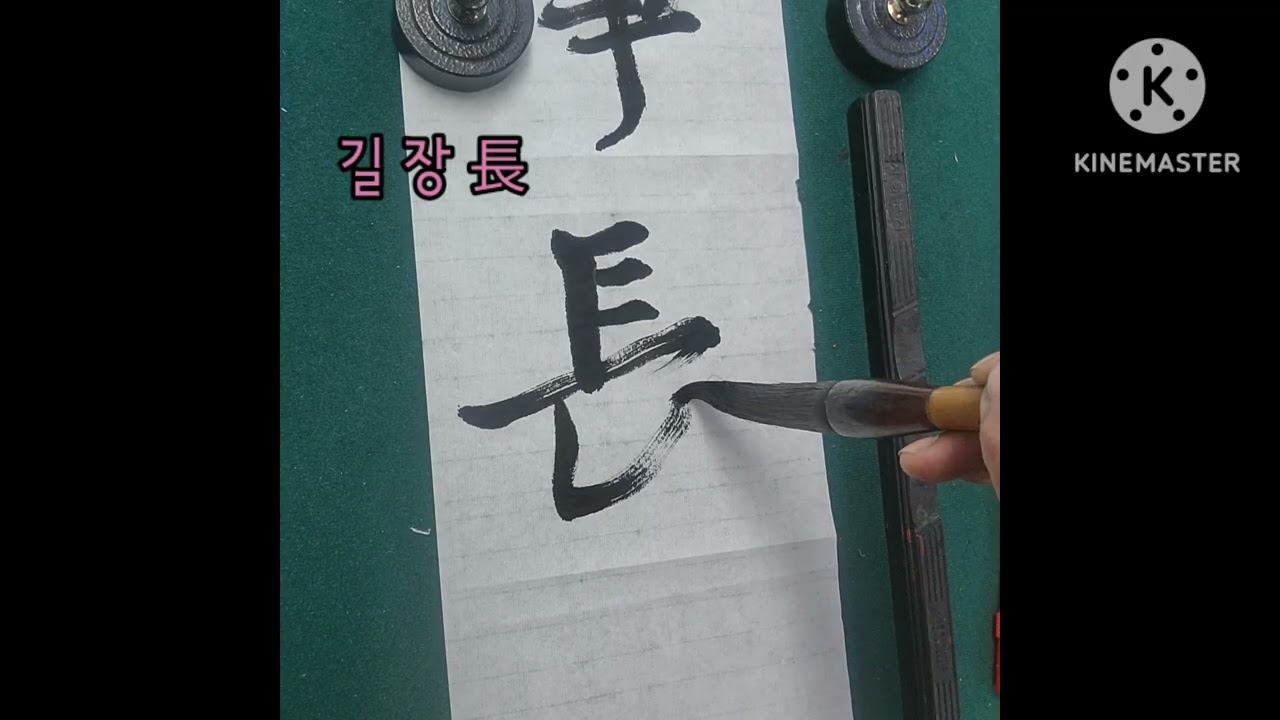 길 장 長
長
KINEMASTER